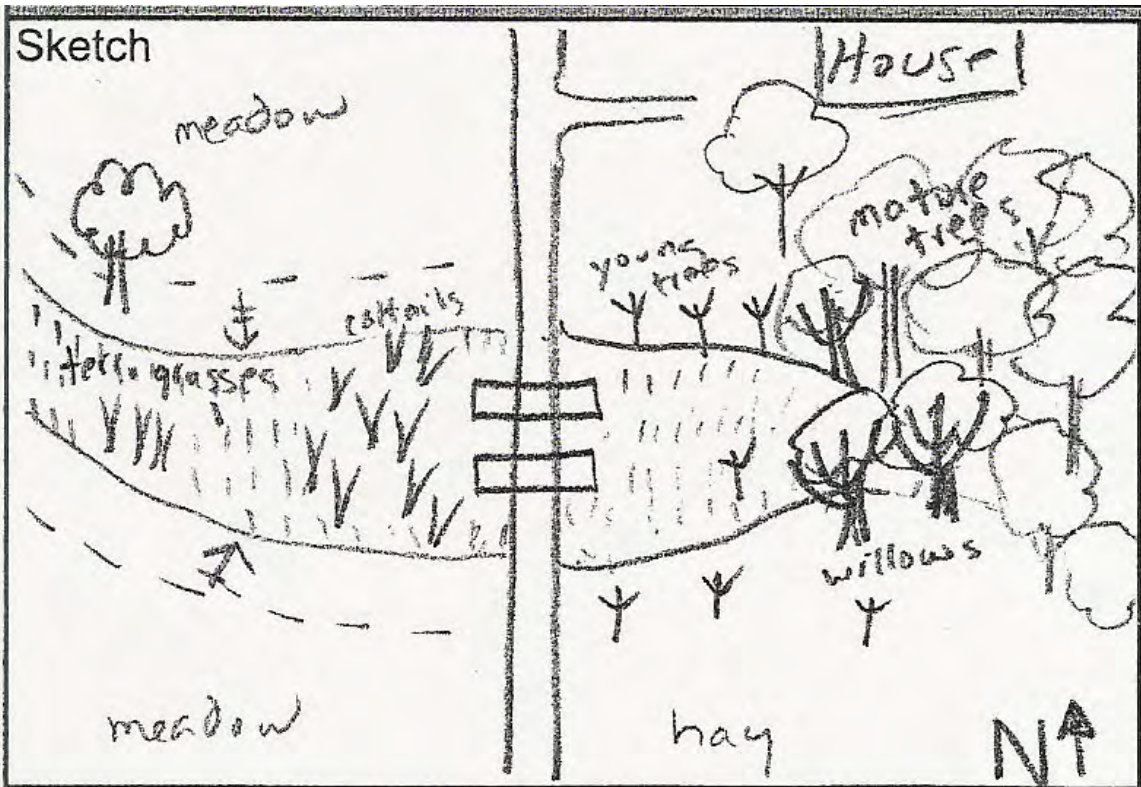 Sketch
House
meadow
mature
trees
young
trees
cattails
grasses
willows
meadow
hay
N